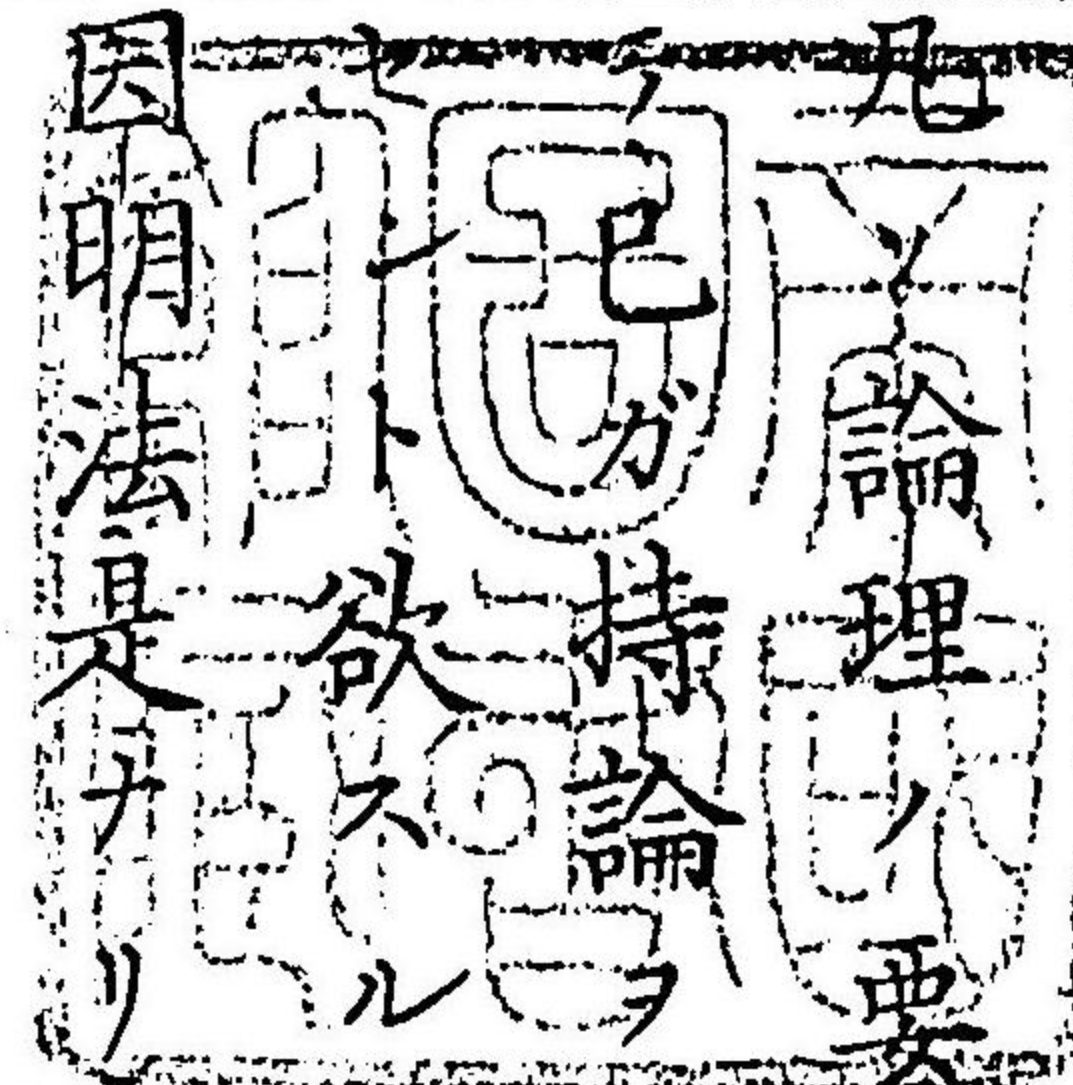 凡ソ論理ノ要
ノ己ガ持論ヲ
セント欲スル
因明法是ナリ